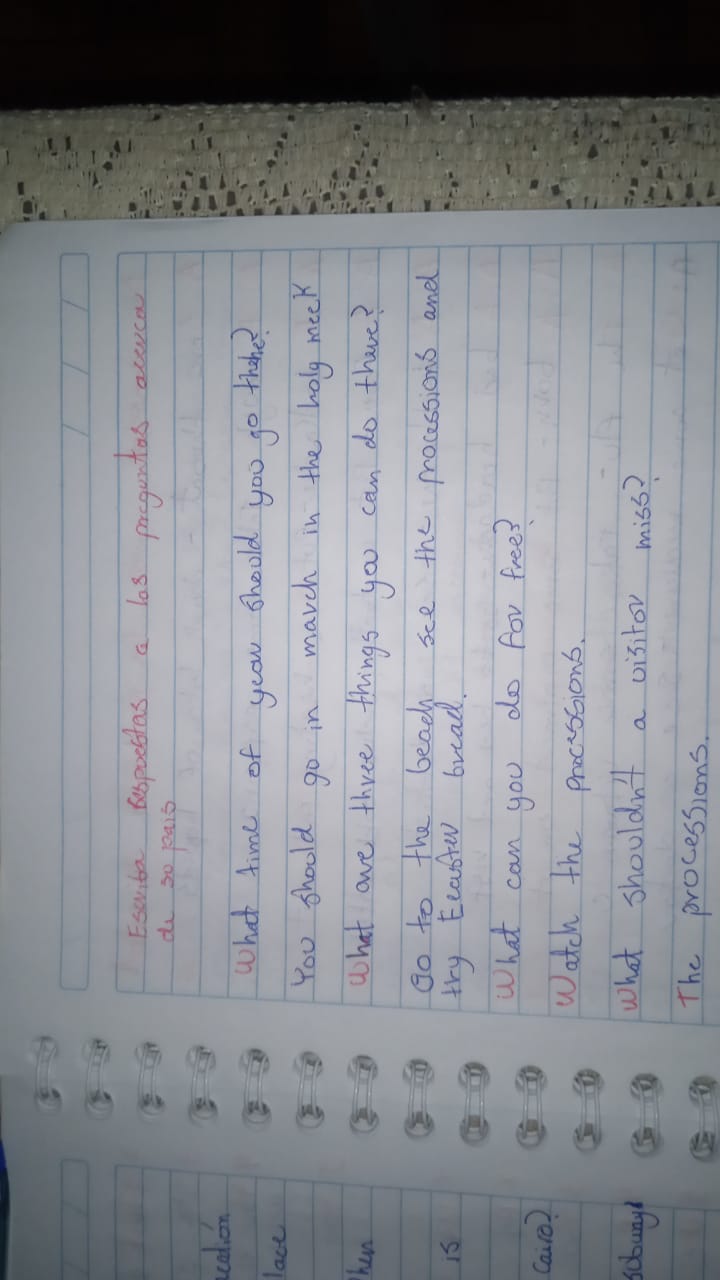 Escriba respuestas a las preguntas acerca
de so pais
What time of year should you go there?
You should go in march in the holy week
What are three things you can do there?
Go to the beach see the processions and
try Eeaster bread.
What can you do for free?
Watch the processions.
What shouldn't a visitor miss?
The processions.
lace
hen
is
Cairo?